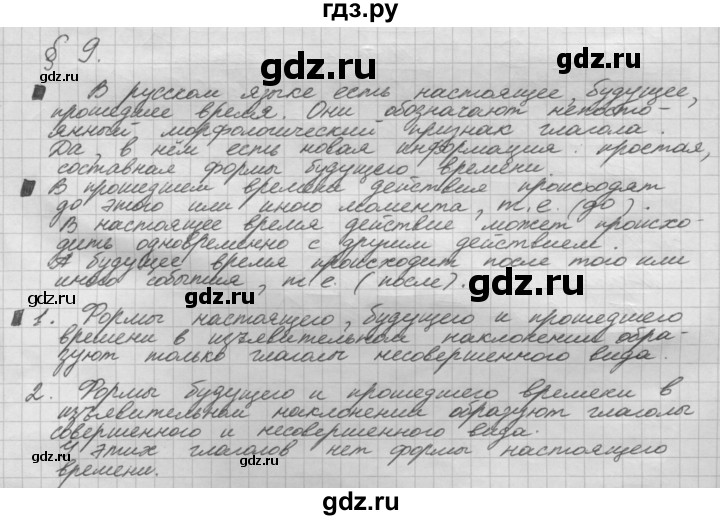 гдз.ру
§ 9.
В русском языке есть настоящее, будущее,
прошедшее время. Они обозначают непосто-
янный морфологический признак глагола.
Да, в нём есть новая информация: простая,
составная формы будущего времени.
В прошедшем времени действия происходят
до этого или иного момента, т.е. (до).
В настоящее время действие может происхо-
дить одновременно с другим действием.
А будущее время происходит после того или
иного события, т.е. (после).
1. Формы настоящего, будущего и прошедшего
времени в изъявительном наклонении обра-
зуют только глаголы несовершенного вида.
2. Формы будущего и прошедшего времени в
изъявительном наклонении образуют глаголы
совершенного и несовершенного вида.
У этих глаголов нет формы настоящего
времени.
gdz.ru
gdz.ru
gdz.ru
gdz.ru
gdz.ru
gdz.ru
gdz.ru
gdz.ru
gdz.ru
gdz.ru
gdz.ru
gdz.ru
gdz.ru
gdz.ru